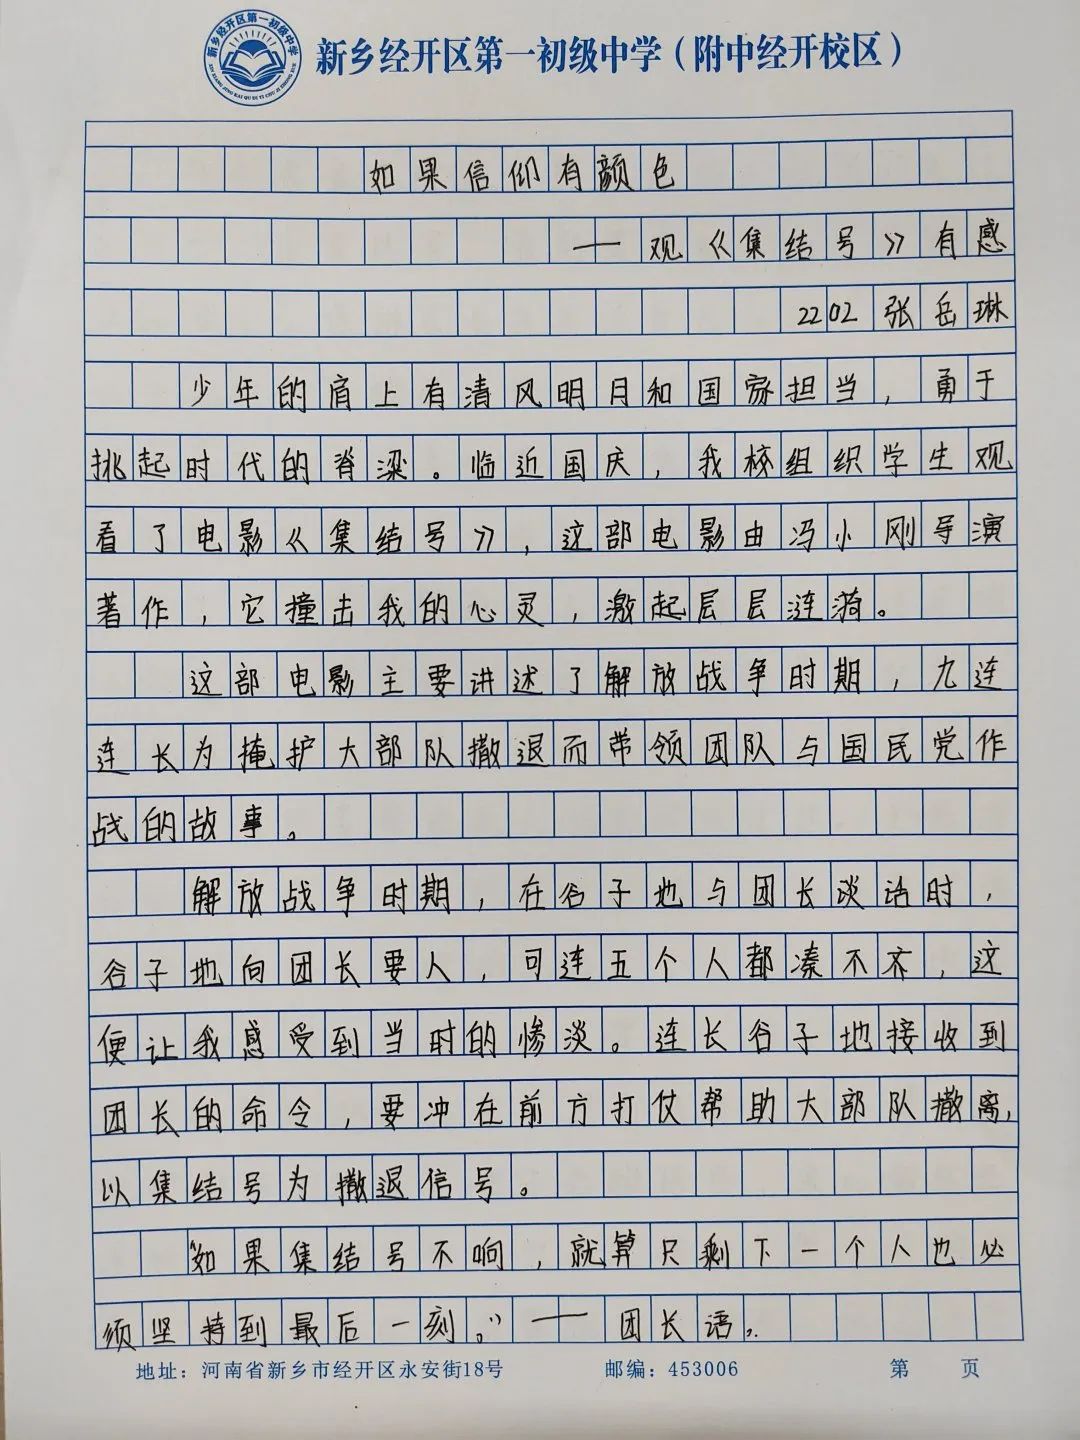 新乡经开区第一初级中学
XIN XIANG JING KAI QU DI YI CHU JI ZHONG XUE
新乡经开区第一初级中学（附中经开校区）
如果信仰有颜色
——观《集结号》有感
2202张岳琳
少年的肩上有清风明月和国家担当，勇于
挑起时代的脊梁。临近国庆，我校组织学生观
看了电影《集结号》，这部电影由冯小刚导演
著作，它撞击我的心灵，激起层层涟漪。
这部电影主要讲述了解放战争时期，九连
连长为掩护大部队撤退而带领团队与国民党作
战的故事。
解放战争时期，在谷子地与团长谈话时，
谷子地向团长要人，可连五个人都凑不齐，这
便让我感受到当时的惨淡。连长谷子地接收到
团长的命令，要冲在前方打仗帮助大部队撤离，
以集结号为撤退信号。
“如果集结号不响，就算只剩下一个人也必
须坚持到最后一刻。”——团长语。
地址：河南省新乡市经开区永安街18号 邮编：453006 第 页